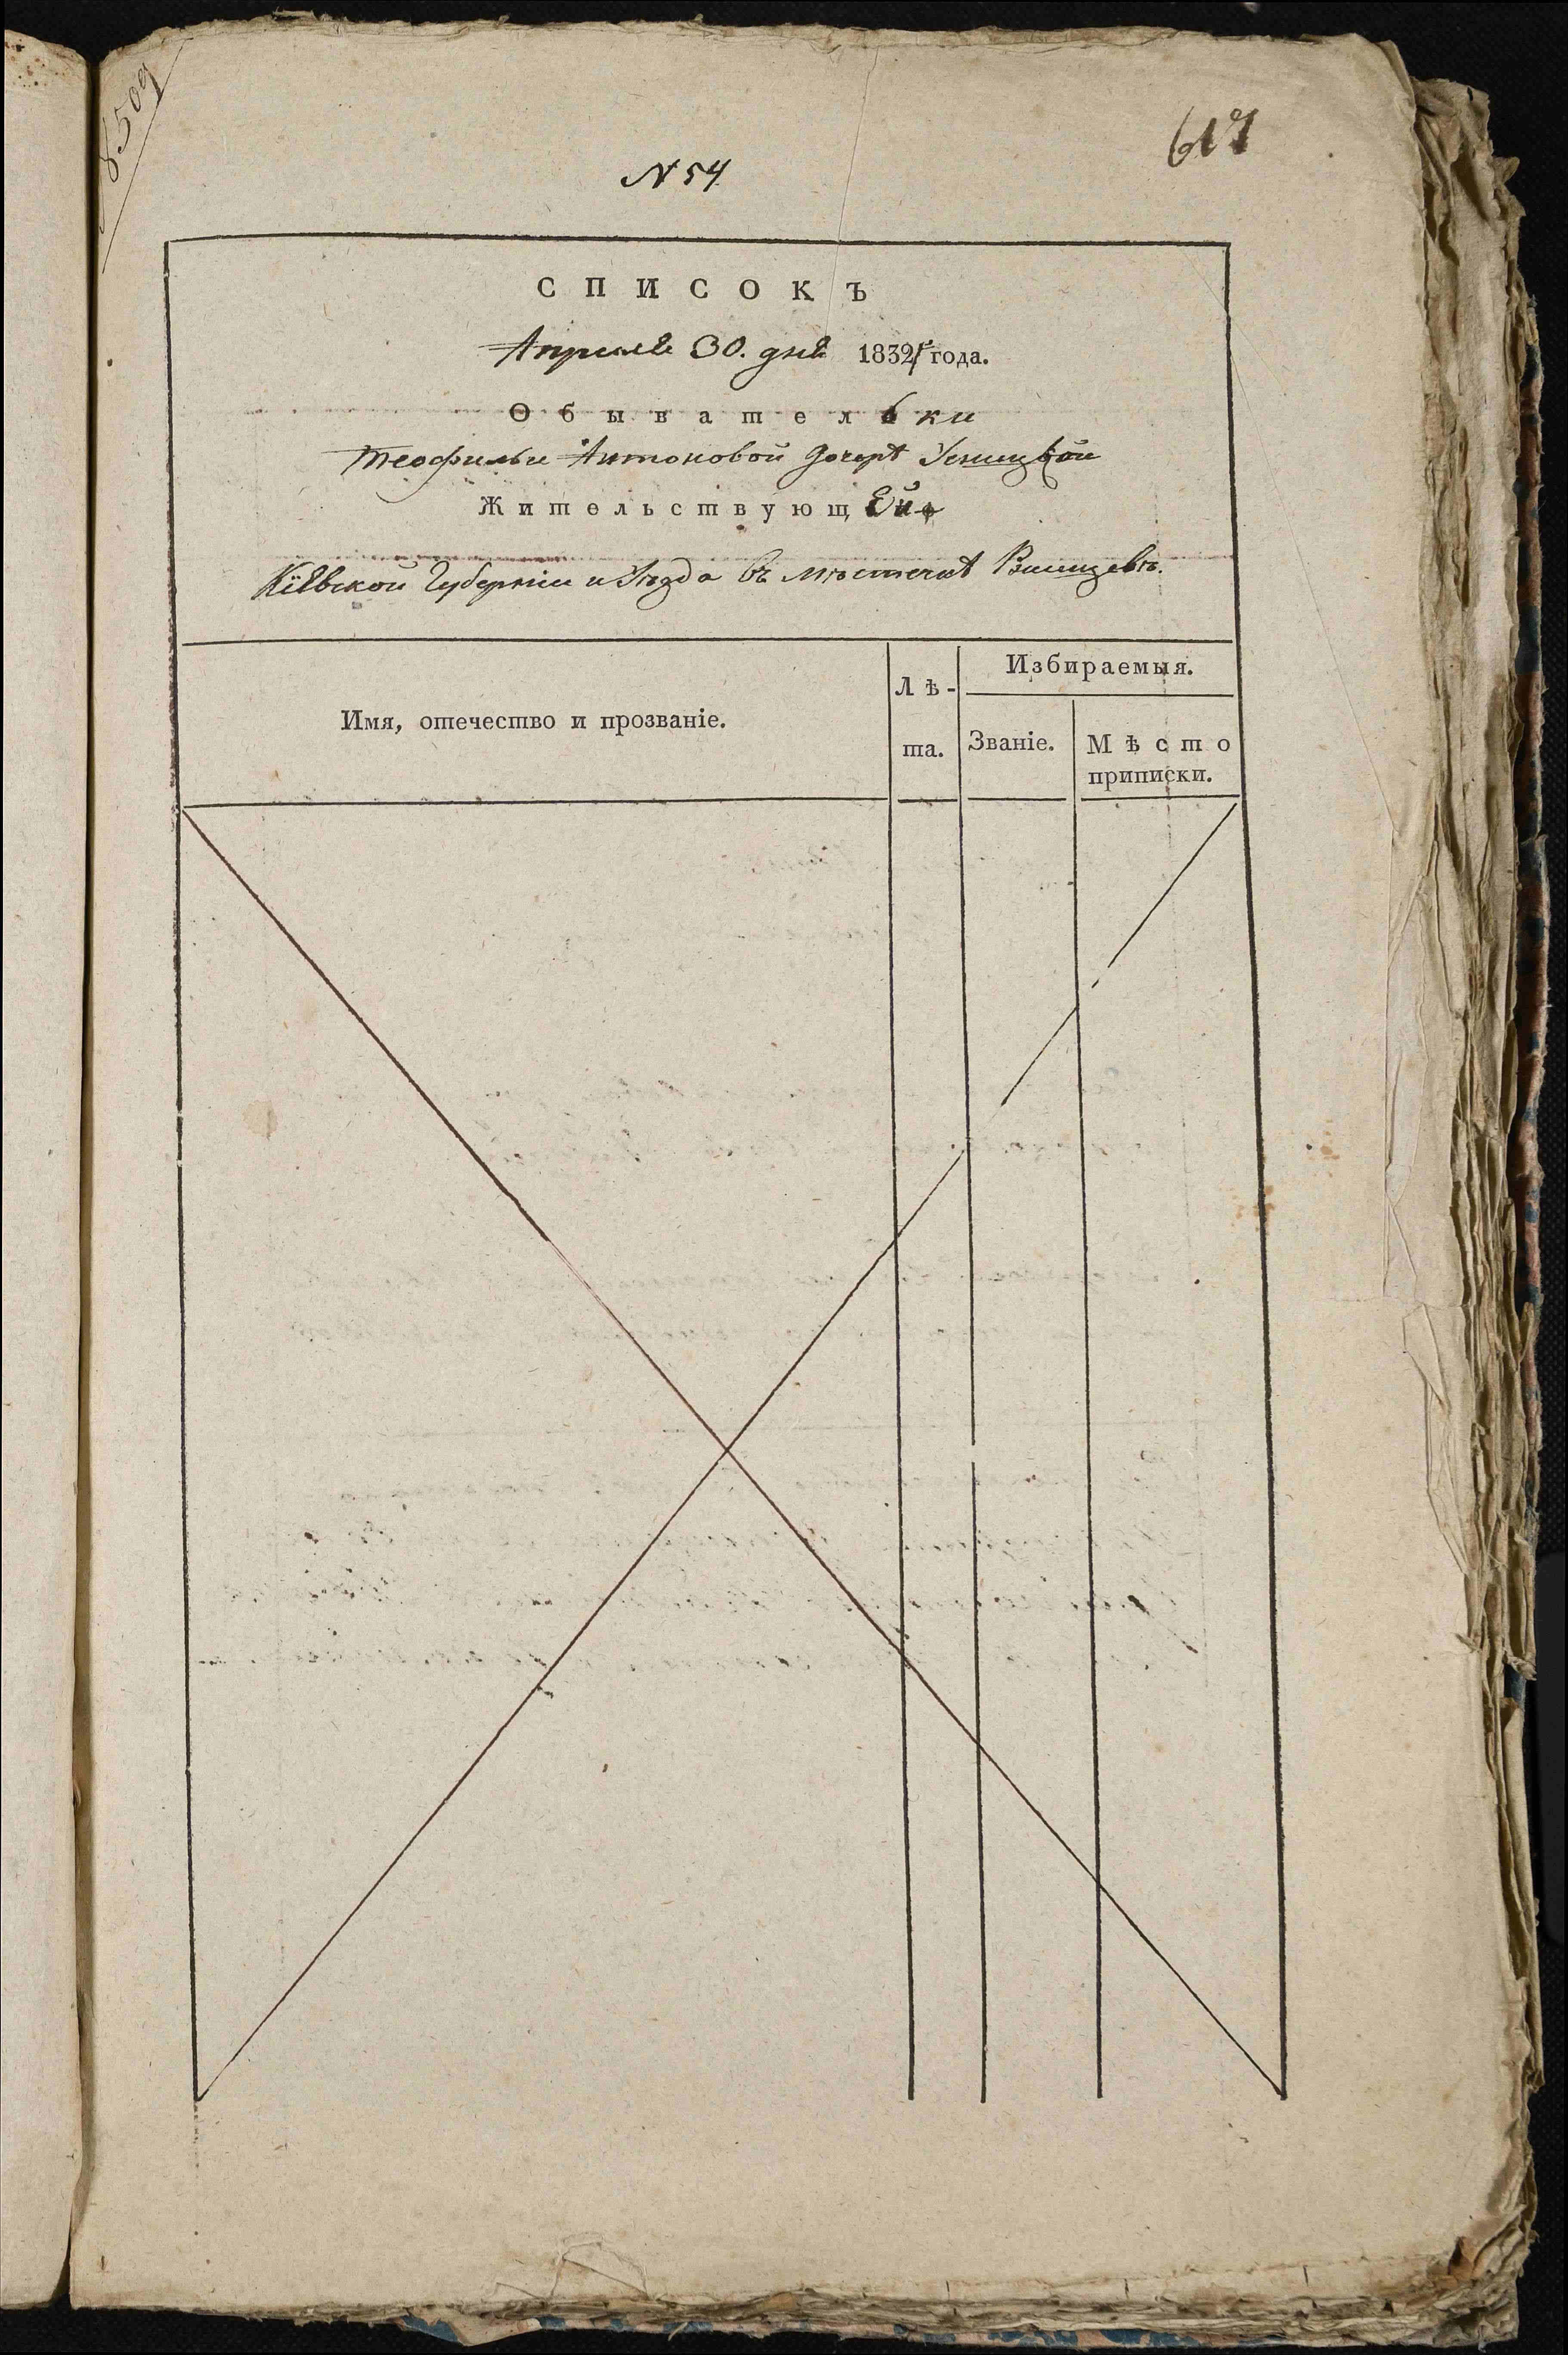 8509
617
N 54
СПИСОКЪ
Апреля 30. дня 1832 года.
Обывательки
Теофильи Антоновой дочерѣ
Жительствующей
Кіевской Губерніи и Уезда въ мѣстечкѣ
Имя, отечество и прозваніе.
Лѣ-
та.
Избираемыя.
Званіе.
Мѣсто
приписки.